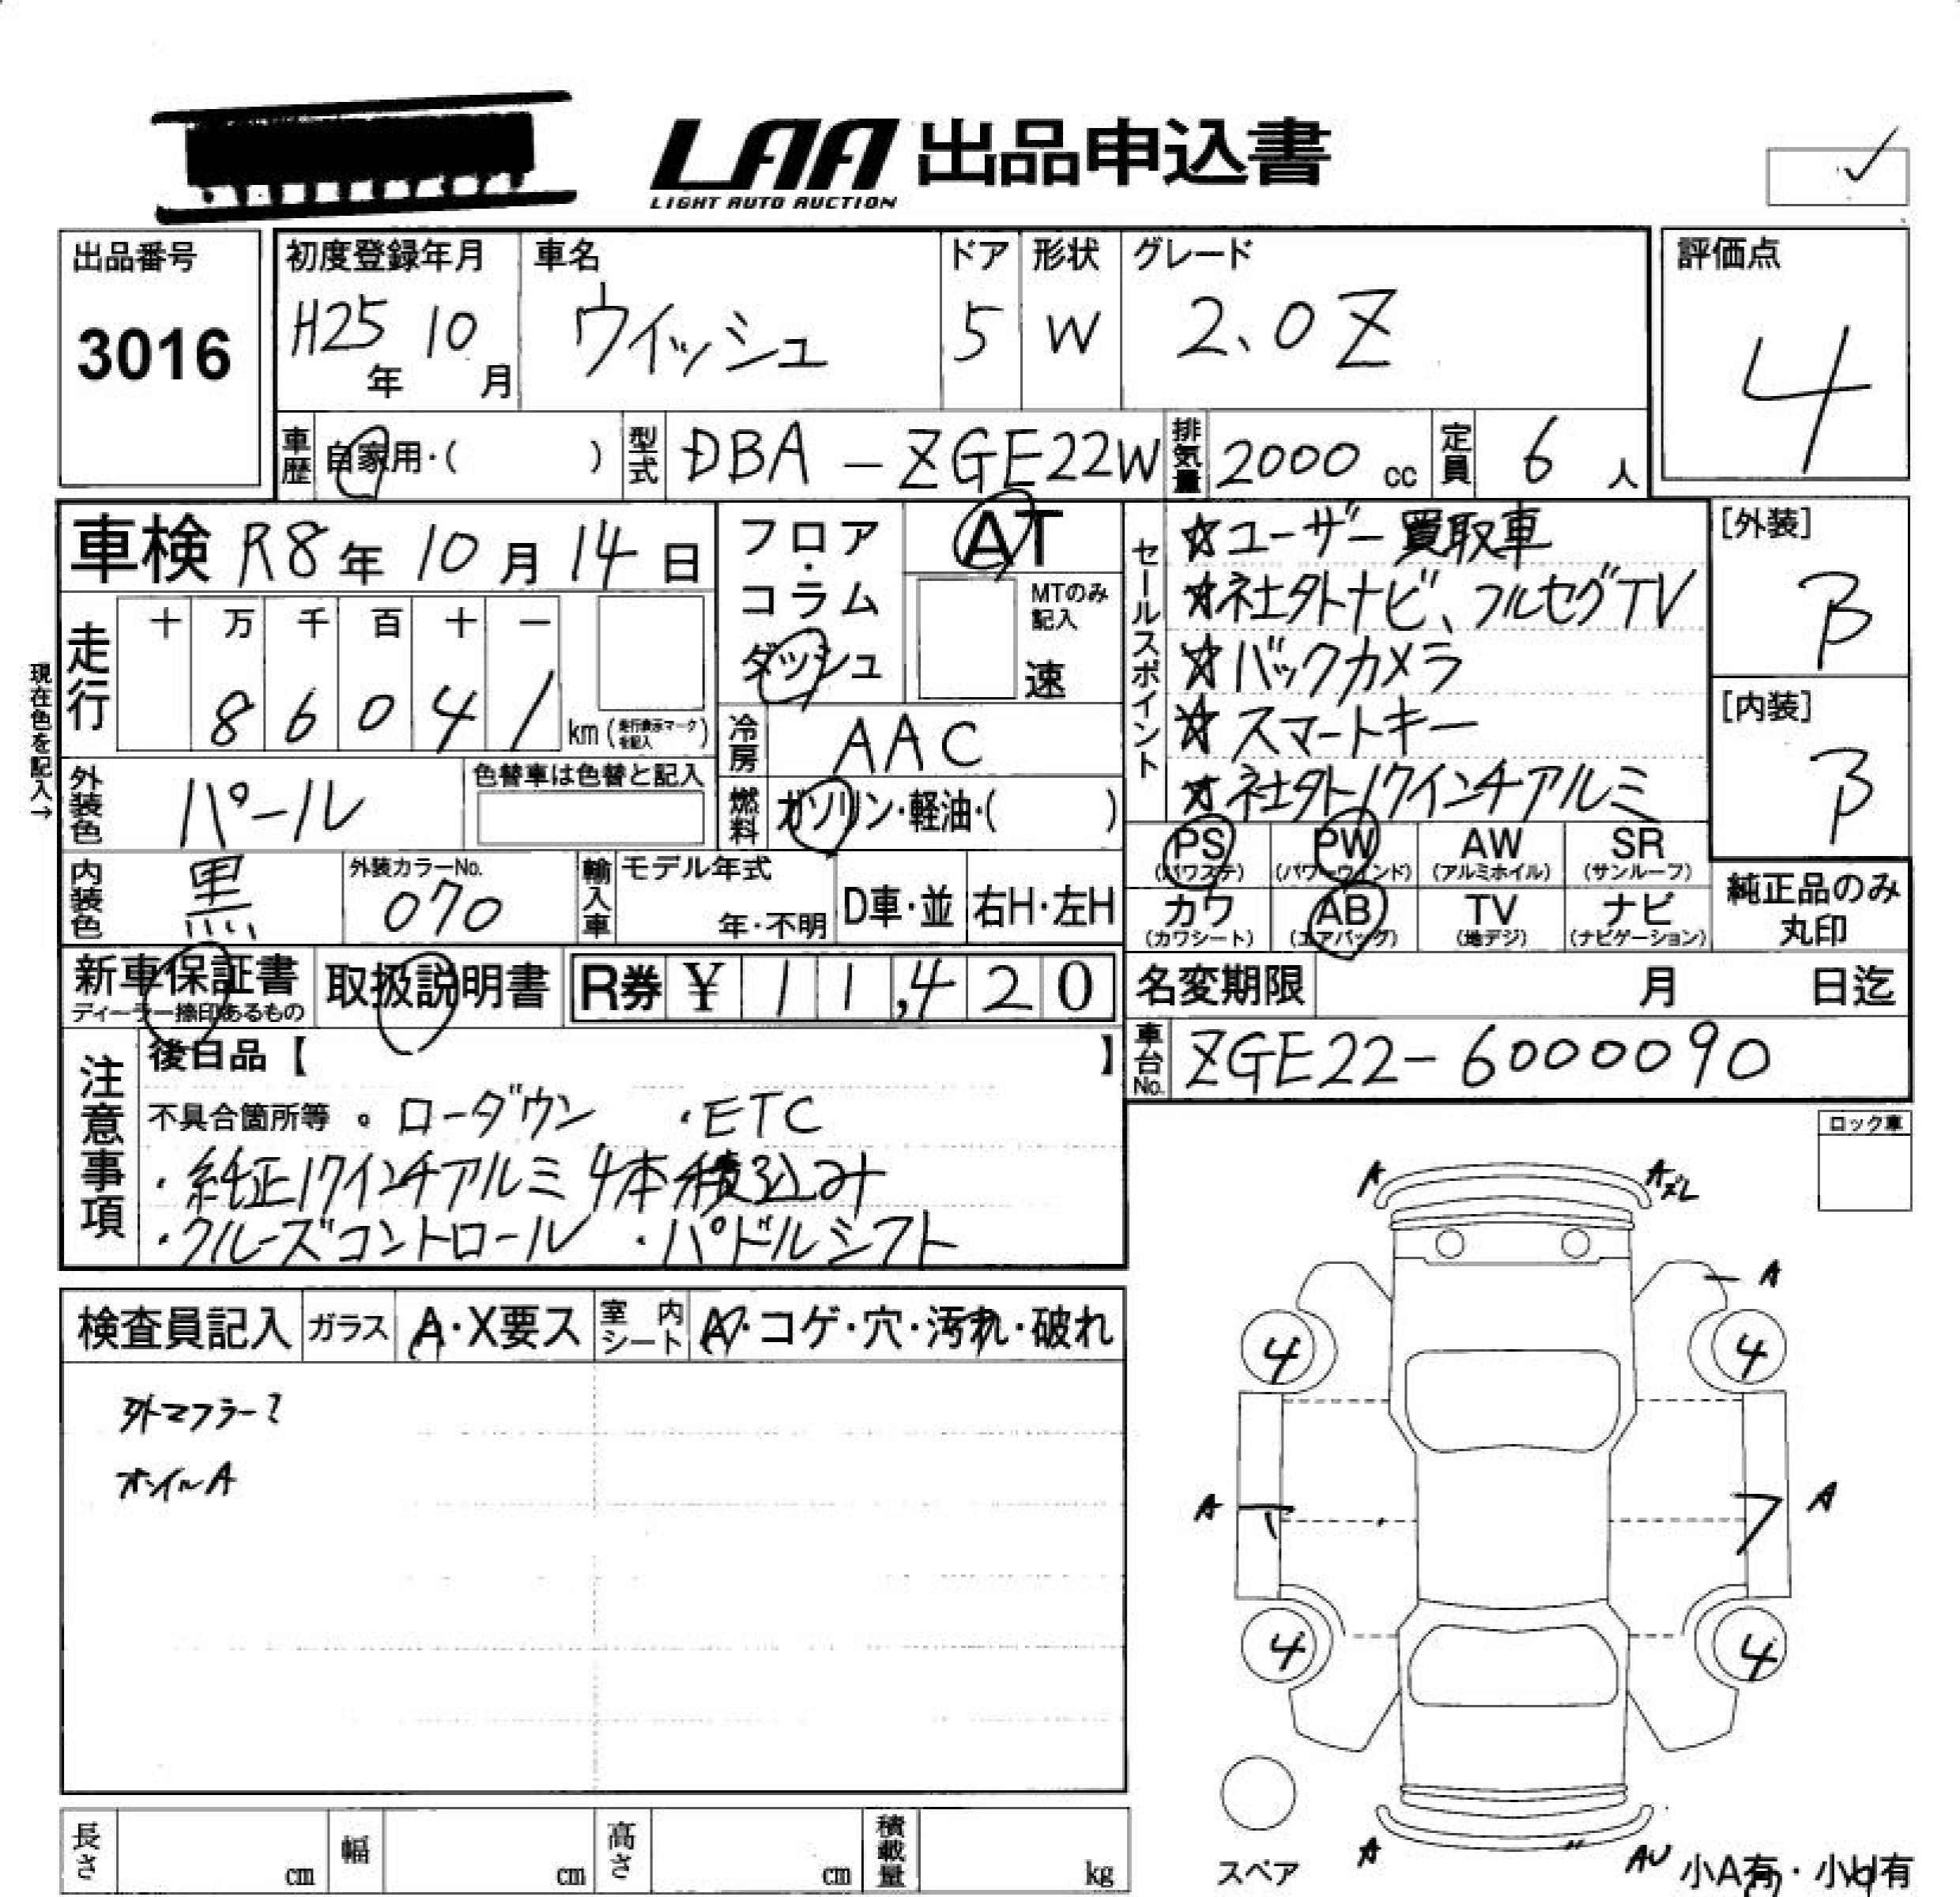 LAA 出品申込書
LIGHT AUTO AUCTION
出品番号
3016
初度登録年月
H25年 10月
車名
ウイッシュ
ドア
5
形状
W
グレード
2.0Z
評価点
4
車歴 自家用・( )
型式 DBA-ZGE22W
排気量 2000 cc
定員 6 人
車検 R8年 10月 14日
フロア・コラム
ダッシュ
AT
MTのみ記入
速
走行
十 万 千 百 十 一
8 6 0 4 1 km (走行表示マークを記入)
現在色を記入→
冷房 AAC
燃料 ガソリン・軽油・( )
外装色 パール
色替車は色替と記入
内装色 黒
外装カラーNo.
070
輸入車
モデル年式
年・不明
D車・並
右H・左H
セールスポイント
☆ユーザー買取車
☆社外ナビ、フルセグTV
☆バックカメラ
☆スマートキー
☆社外17インチアルミ
[外装]
B
[内装]
B
PS (パワステ)
PW (パワーウインド)
AW (アルミホイル)
SR (サンルーフ)
カワ (カワシート)
AB (エアバッグ)
TV (地デジ)
ナビ (ナビゲーション)
純正品のみ丸印
新車保証書
ディーラー捺印あるもの
取扱説明書
R券 ¥ 11,420
名変期限 月 日迄
車台No. ZGE22-6000090
注意事項
後日品【 】
不具合箇所等 ・ローダウン ・ETC
・純正17インチアルミ4本積込み
・クルーズコントロール ・パドルシフト
ロック車
検査員記入
ガラス A・X要ス
室内シート A・コゲ・穴・汚れ・破れ
外マフラー?
オイルA
A
AXL
A
4
4
A
A
4
4
スペア
A
AU
小A有・小U有
長さ cm
幅 cm
高さ cm
積載量 kg